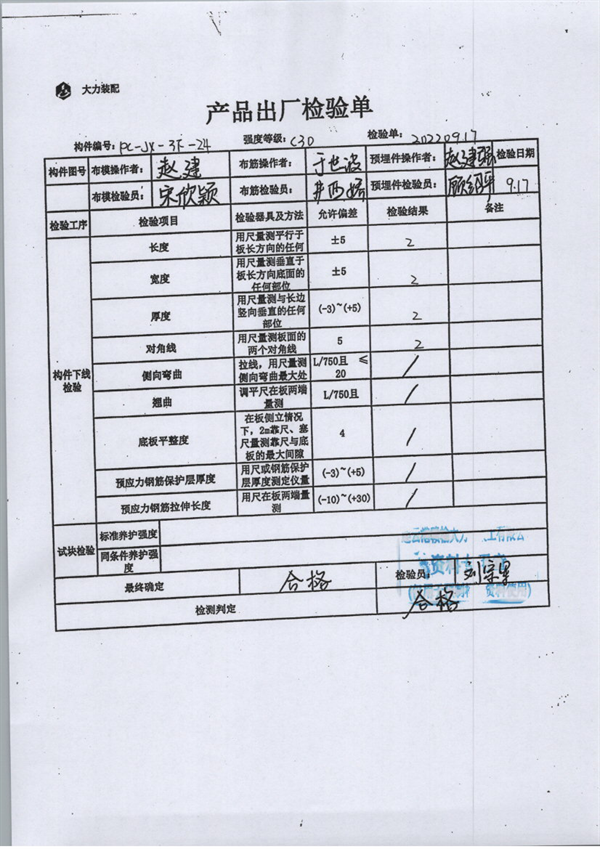 大力装配
产品出厂检验单
构件编号: PC-JX-3F-24 强度等级: C30 检验单: 20220917
构件图号 布模操作者: 赵建 布筋操作者: 于世波 预埋件操作者: 赵建强 检验日期
布模检验员: 宋欣颖 布筋检验员: 预埋件检验员: 9.17
检验工序 检验项目 检验器具及方法 允许偏差 检验结果 备注
构件下线检验
长度 用尺量测平行于板长方向的任何 ±5 2
宽度 用尺量测垂直于板长方向底面的任何部位 ±5 2
厚度 用尺量测与长边竖向垂直的任何部位 (-3)~(+5) 2
对角线 用尺量测板面的两个对角线 5 2
侧向弯曲 拉线，用尺量测侧向弯曲最大处 L/750且 ≤20 /
翘曲 调平尺在板两端量测 L/750且 /
底板平整度 在板侧立情况下，2m靠尺、塞尺量测靠尺与底板的最大间隙 4 /
预应力钢筋保护层厚度 用尺或钢筋保护层厚度测定仪量 (-3)~(+5) /
预应力钢筋拉伸长度 用尺在板两端量测 (-10)~(+30) /
试块检验 标准养护强度
同条件养护强度
最终确定 合格 检验员:
检测判定 合格